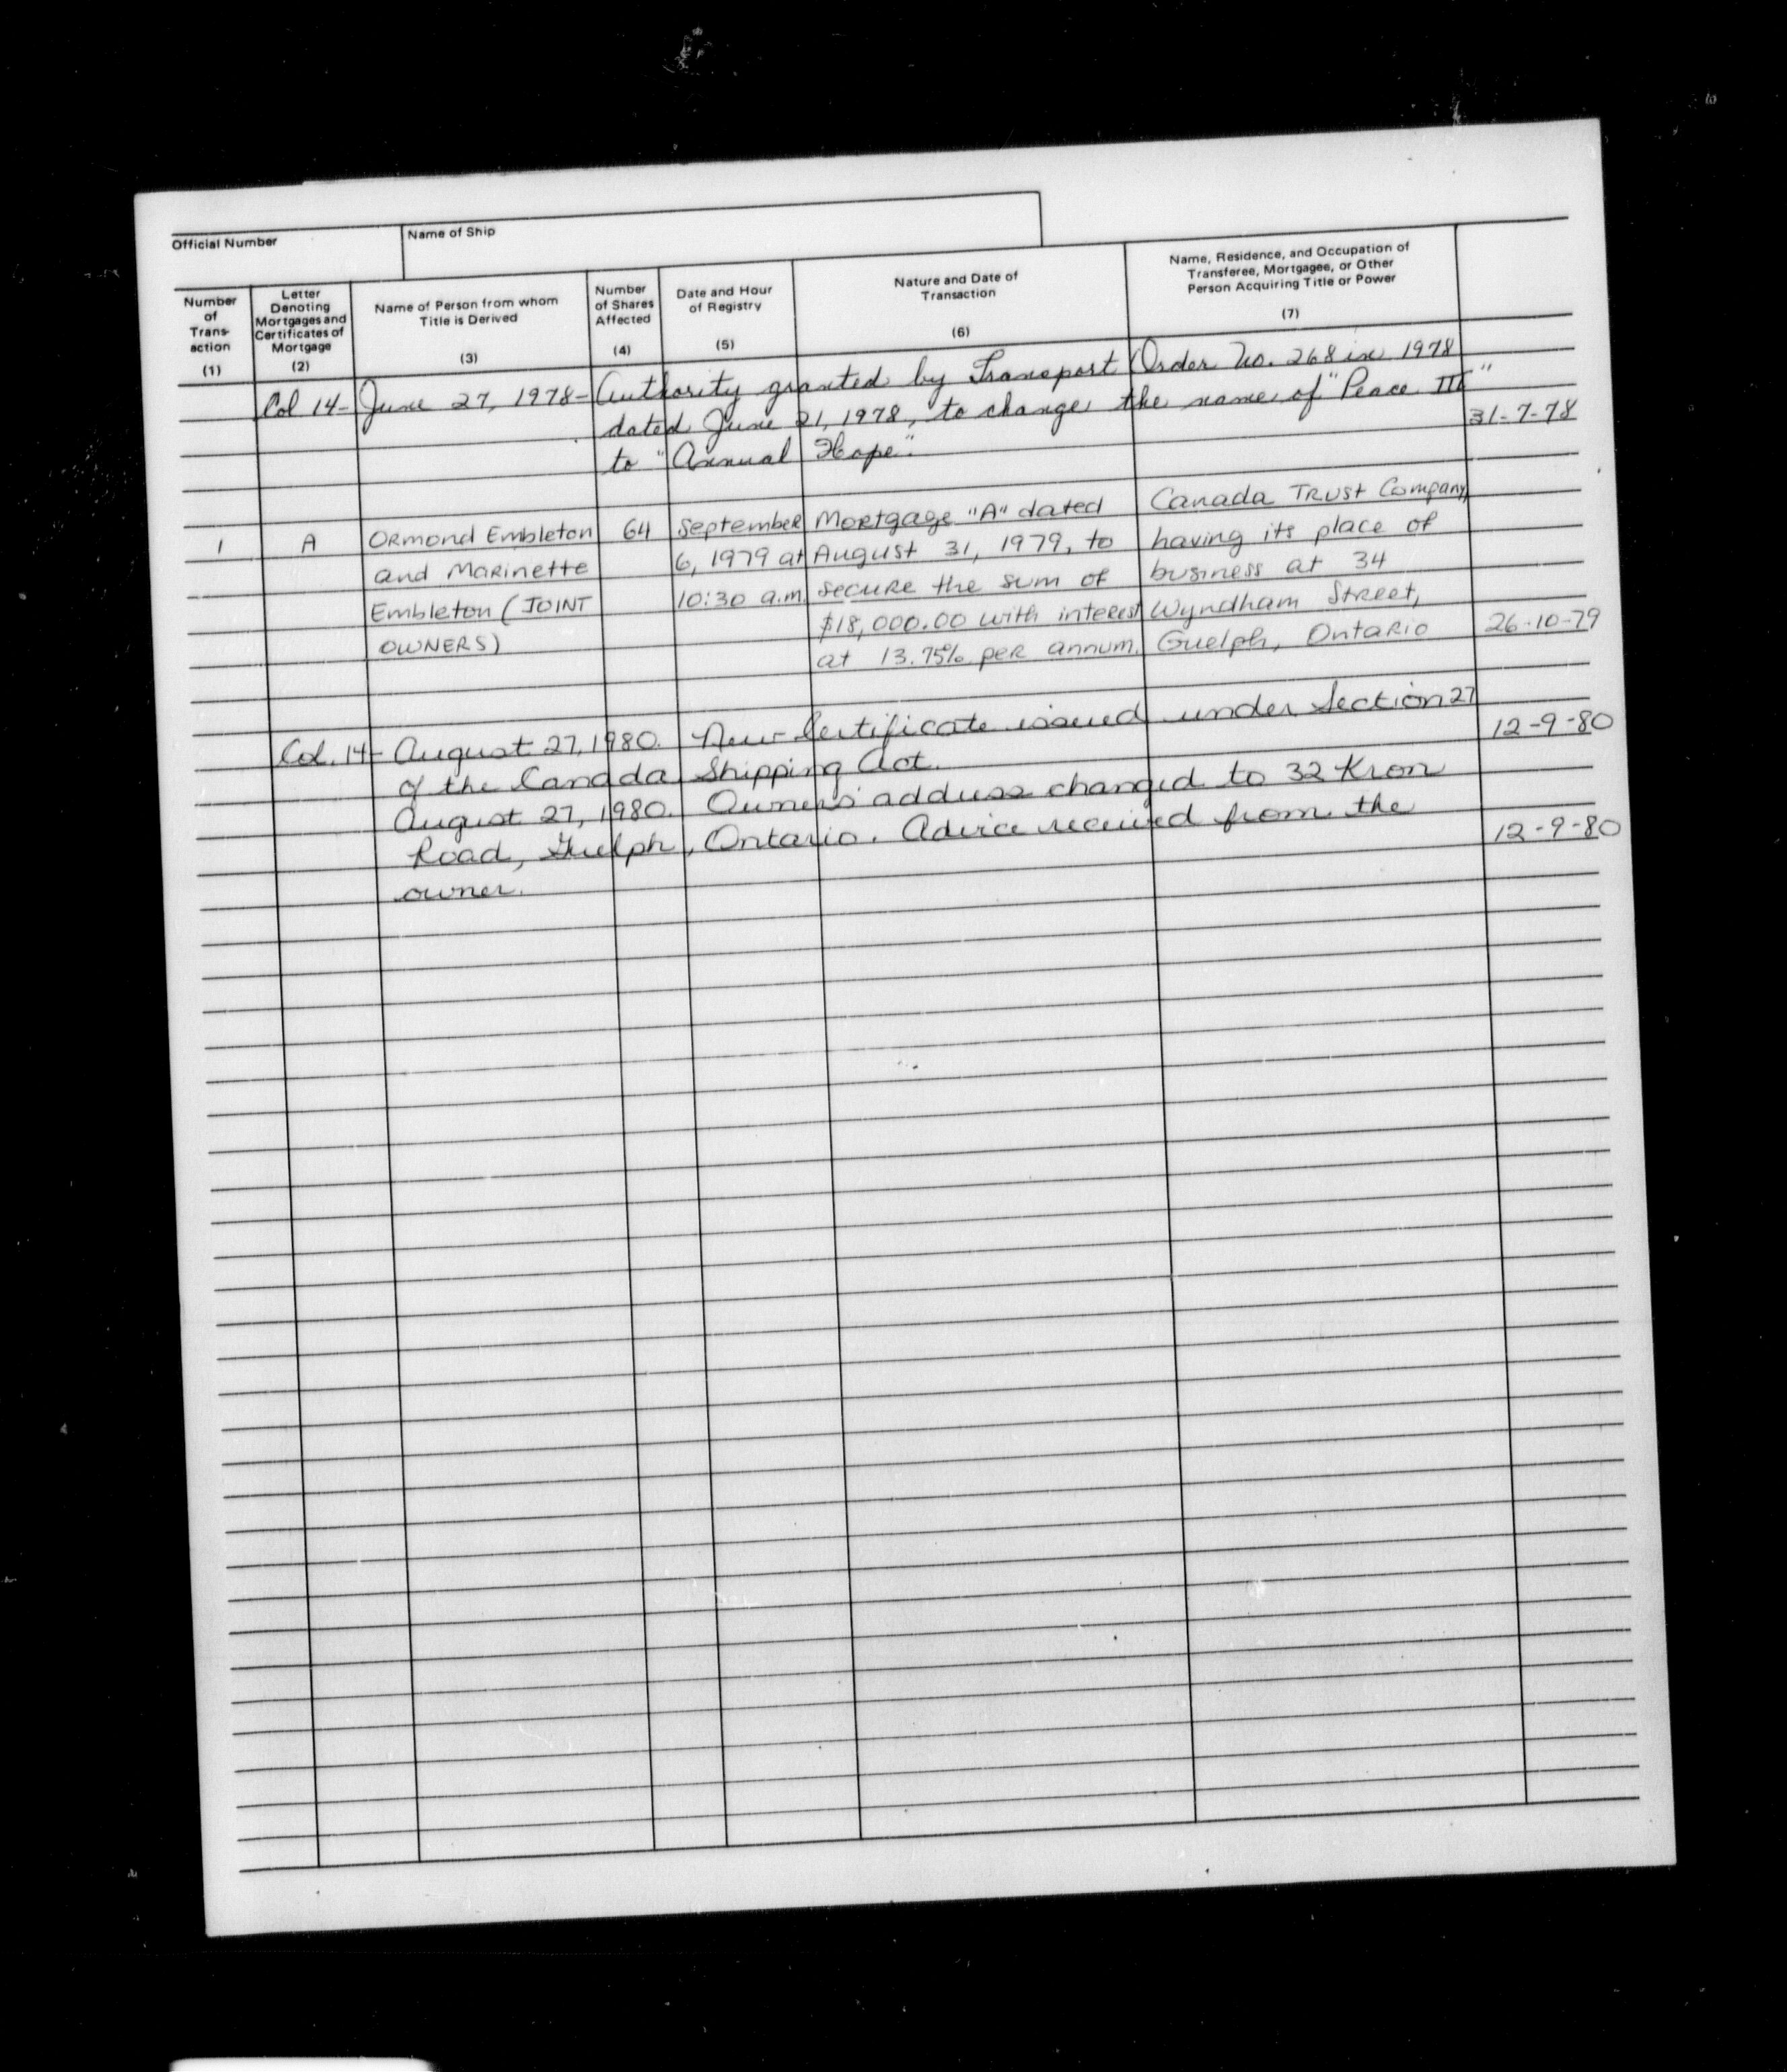 Official Number
Name of Ship
Number
of
Trans-
action
(1)
Letter
Denoting
Mortgages and
Certificates of
Mortgage
(2)
Name of Person from whom
Title is Derived
(3)
Number
of Shares
Affected
(4)
Date and Hour
of Registry
(5)
Nature and Date of
Transaction
(6)
Name, Residence, and Occupation of
Transferee, Mortgagee, or Other
Person Acquiring Title or Power
(7)
Col 14- June 27, 1978- Authority granted by Transport Order No. 268 in 1978
dated June 21, 1978, to change the name of "Peace III"
to "Annual Hope".
31-7-78
1
A
Ormond Embleton
and Marinette
Embleton (JOINT
OWNERS)
64
September
6, 1979 at
10:30 a.m.
Mortgage "A" dated
August 31, 1979, to
secure the sum of
$18,000.00 with interest
at 13.75% per annum.
Canada Trust Company
having its place of
business at 34
Wyndham Street,
Guelph, Ontario
26-10-79
Col. 14- August 27, 1980. New Certificate issued under Section 27
of the Canada Shipping Act.
12-9-80
August 27, 1980. Owners' address changed to 32 Kron
Road, Guelph, Ontario. Advice received from the
owner.
12-9-80